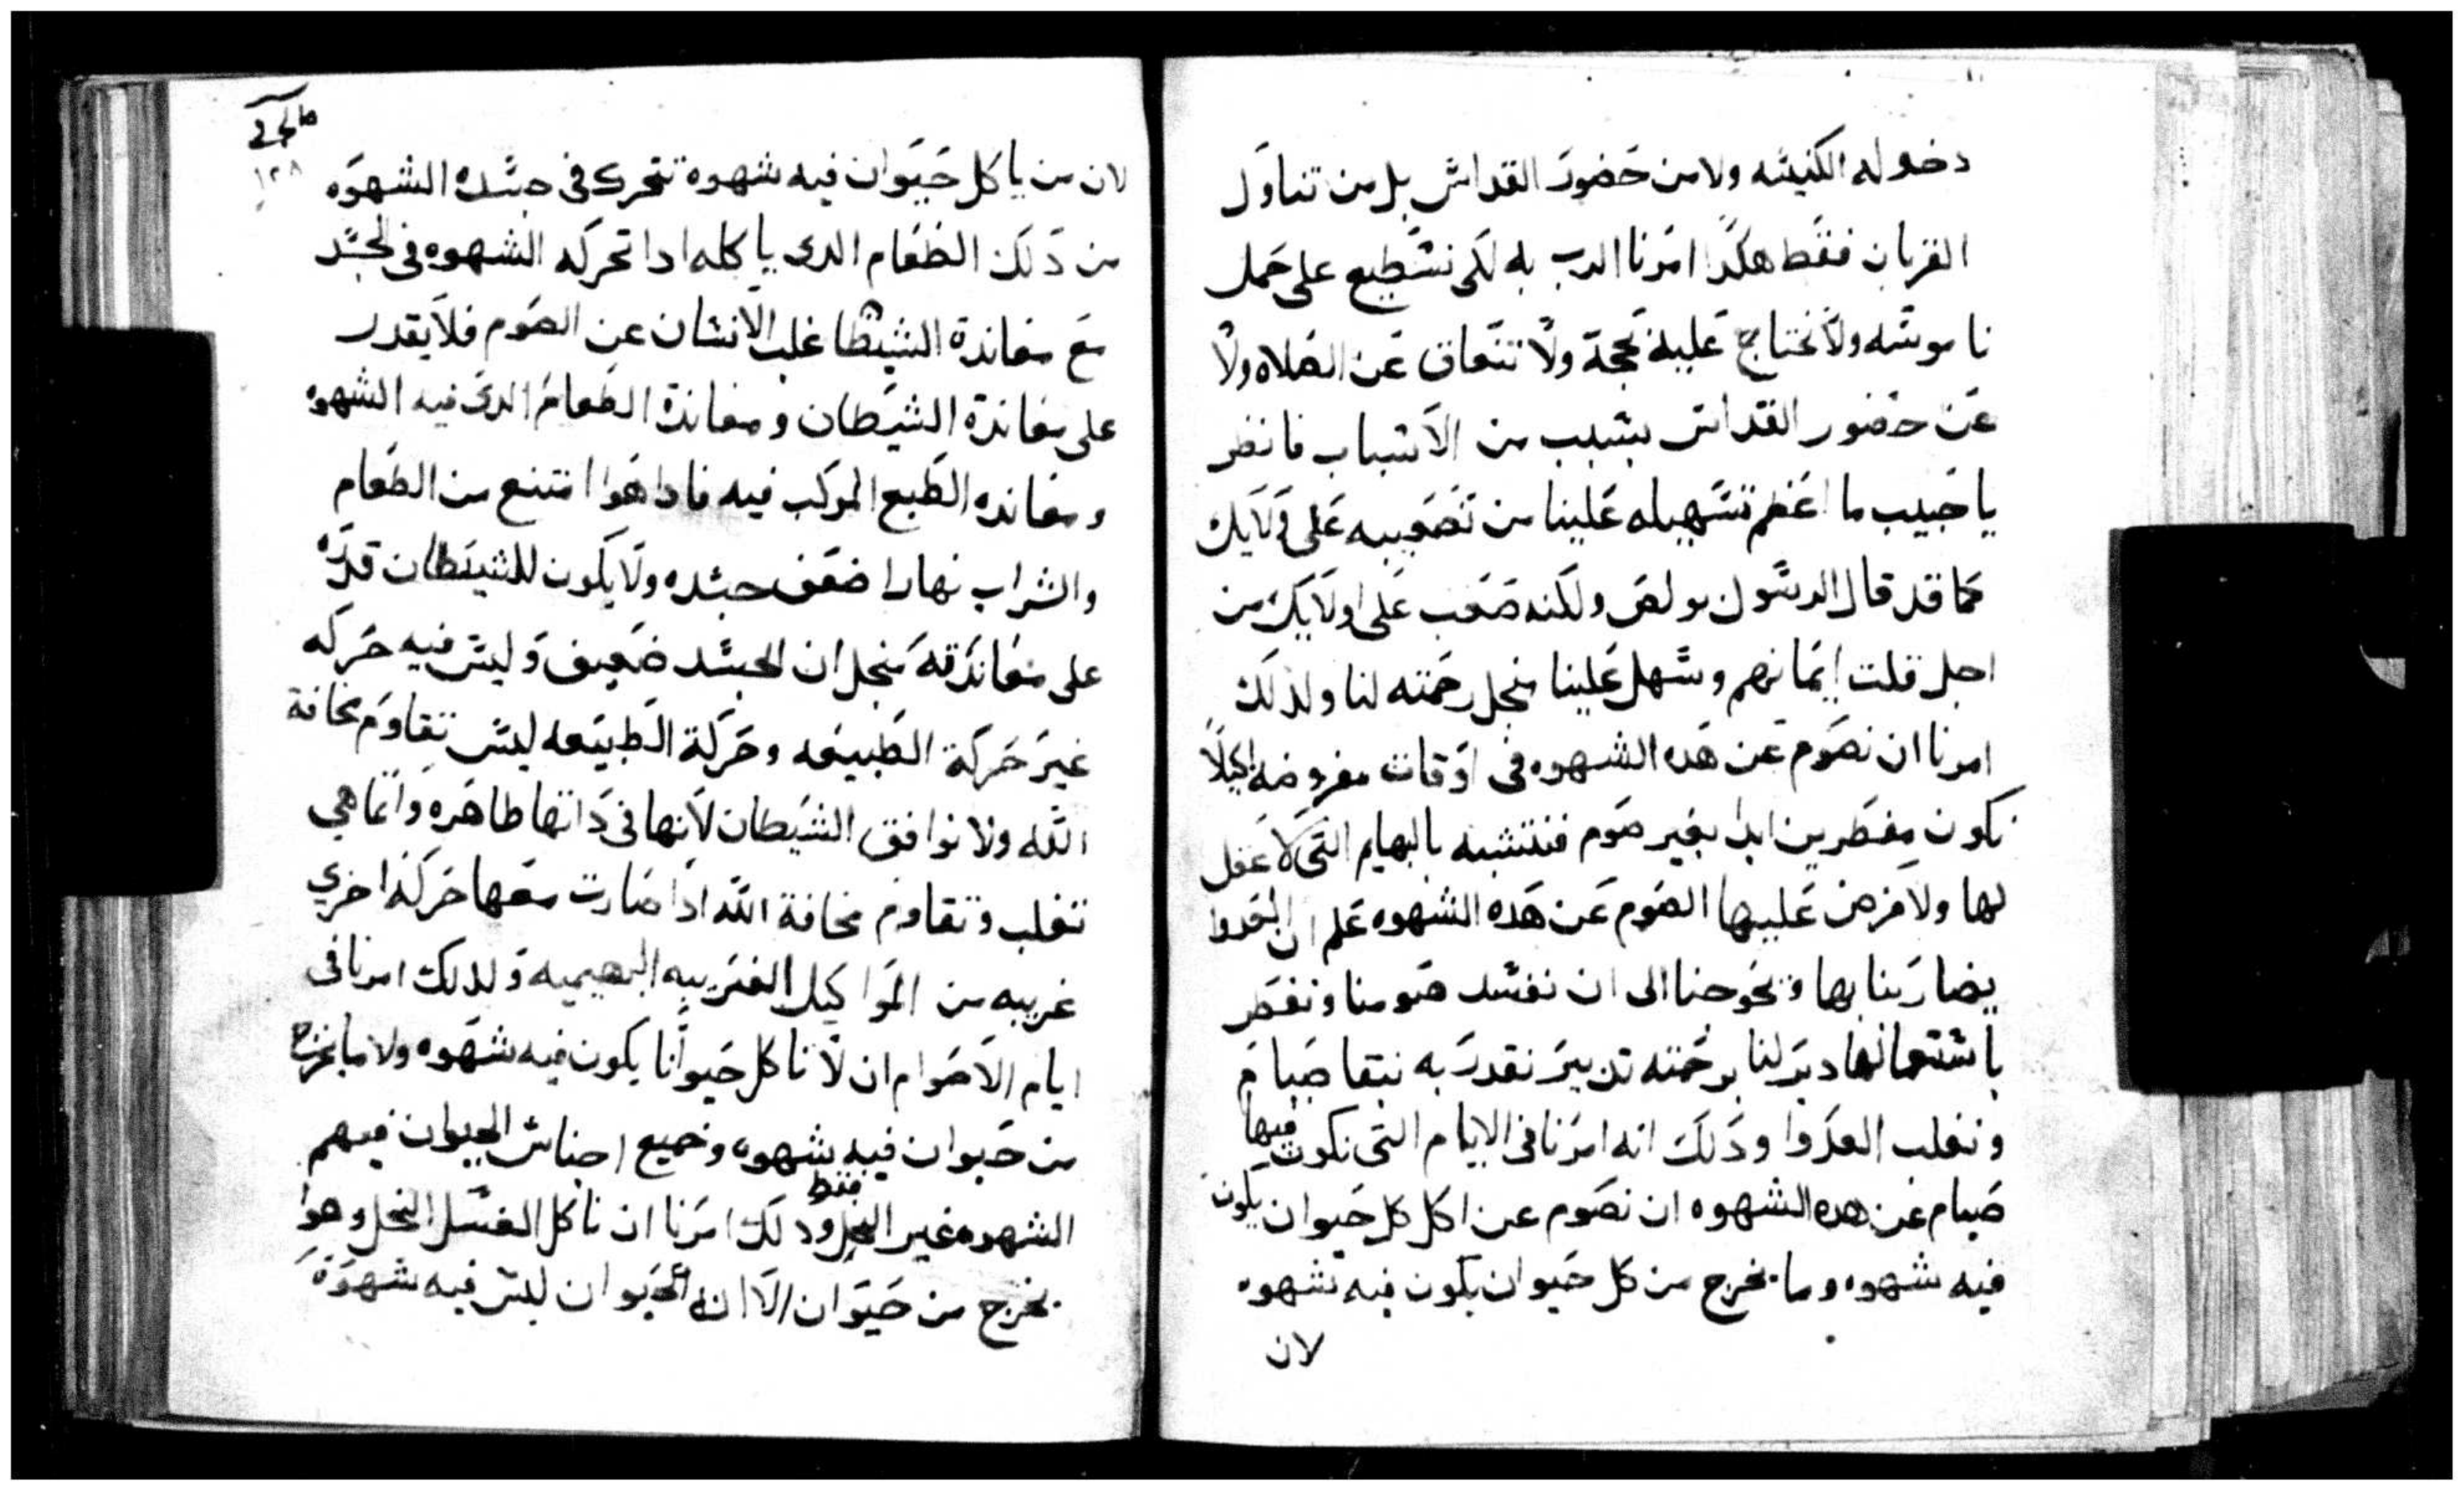 دخوله الكنيسه ولا من حضور القداس بل من تناول
القربان فقط هكذا امرنا الرب به لكى نسطيع على حمل
ناموسه ولا نحتاج عليه بحجة ولا نتعاق عن الصلاه ولا
عن حضور القداس بسبب من الاسباب فانظر
يا حبيب ما اعظم تسهيله علينا من تصعيبه على اولايك
كما قد قال الرسول بولص ولكنه صعب على اولايك من
اجل قلت ايمانهم وسهل علينا منجل رحمته لنا ولذلك
امرنا ان نصوم عن هده الشهوه فى اوقات مفروضه لكيلا
نكون مفطرين ابدا بغير صوم فنتشبه بالبهايم التى لا عقل
لها ولا فرض عليها الصوم عن هده الشهوه علم ان العدوا
يضاربنا بها ويحوجنا الى ان نفسد صومنا ونفطر
باستعمالها دبر لنا برحمته تدبير نقدر به نبقا صيام
ونغلب العدوا ودلك انه امرنا فى الايام التى نكون فيها
صيام عن هده الشهوه ان نصوم عن اكل كل حيوان يكون
فيه شهوه وما يخرج من كل حيوان يكون فيه شهوه
لان
١٢٨
لان من ياكل حيوان فيه شهوة تتحرك فى جسده الشهوه
من دلك الطعام الدى ياكله ادا تحركه الشهوه فى الجسد
مع معاندة الشيطان غلب الانسان عن الصوم فلا يقدر
على معاندة الشيطان ومعاندة الطعام الدى فيه الشهوه
ومعانده الطبع المركب فيه فادا هوا امتنع من الطعام
والشراب نهارا ضعف جسده ولا يكون للشيطان قدره
على معاندته منجل ان الجسد ضعيف وليس فيه حركه
غير حركة الطبيعه وحركة الطبيعه ليس تقاوم مخافة
الله ولا توافق الشيطان لانها فى داتها طاهره وانما هي
تغلب وتقاوم مخافة الله ادا صارت معها حركة اخري
غريبه من المواكيل الغريبه البهيميه ولدلك امرنا فى
ايام الاصوام ان لا ناكل حيوانا يكون فيه شهوه ولا ما يخرج
من حيوان فيه شهوه وجميع اجناس الحيوان فيهم
الشهوه غير النحل فقط ودلك امرنا ان ناكل العسل النحل وهوا
يخرج من حيوان الا ان دلك الحيوان ليس فيه شهوة